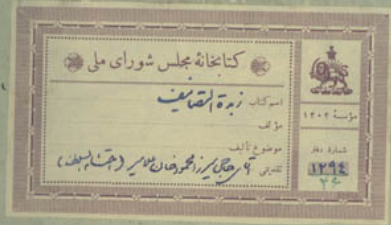 کتابخانهٔ مجلس شورای ملی
اسم کتاب زبدة التصانیف
مؤلف
موضوع تألیف
تقدیمی آقای حاجی میرزا محمود خان (احتشام السلطنه)
مؤسسهٔ ۱۳۰۲
شمارهٔ دفتر
۱۲۹۴